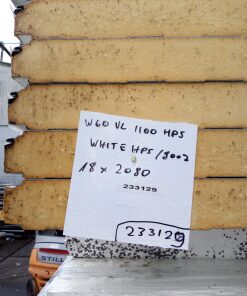 W60 VL 1100 HPS
WHITE HPS/9002
18 x 2080
233129
233129
STILL